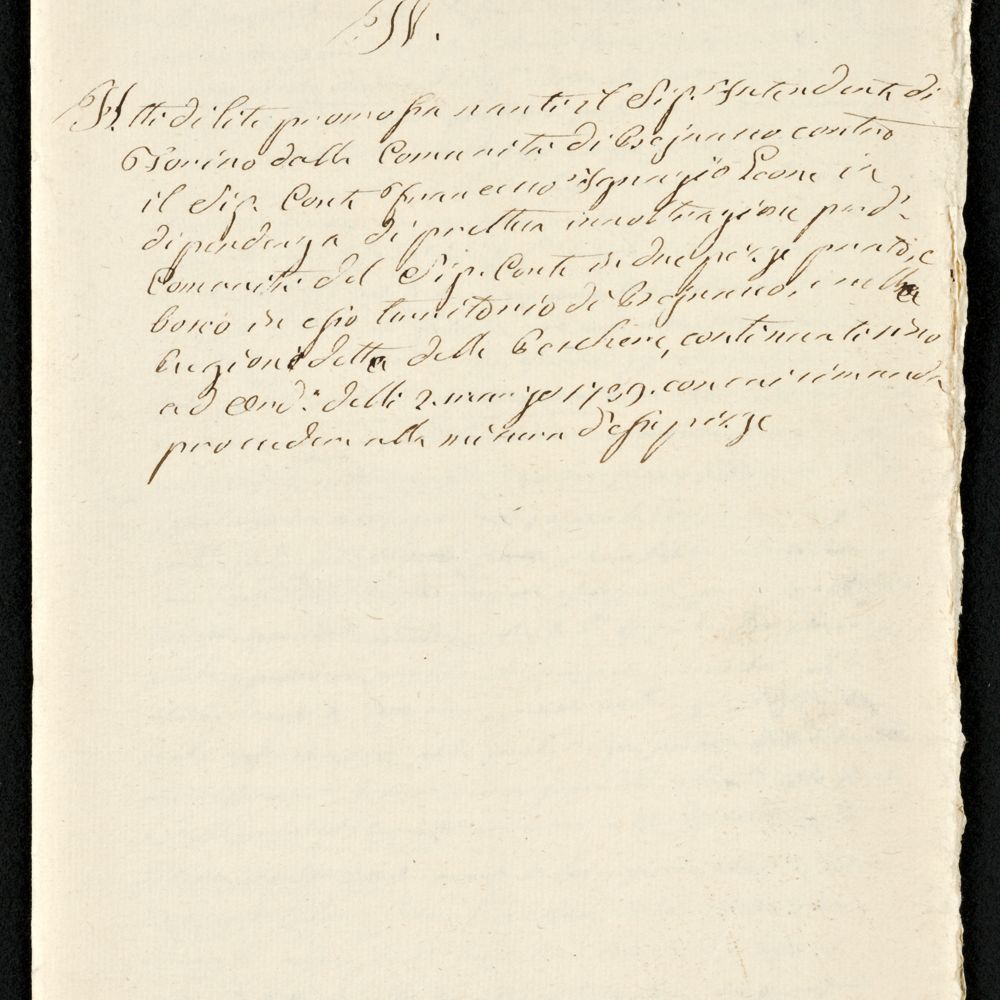 IV.
Atti di lite promossa nanti il Sig.r Intendente di
Torino dalla Comunità di contro
il Sig.r Conte Francesco Ignazio Leone in
dipendenza di pretesa innoltrazione per d.a
Comunità del Sig. Conte in due pezze prato, e
bosco in esso territorio di, e nella
Reggione detta delle Peschere, continuati sino
ad Ord.a delli 2. marzo 1799. con cui si manda
procedere alla misura d'esse pezze